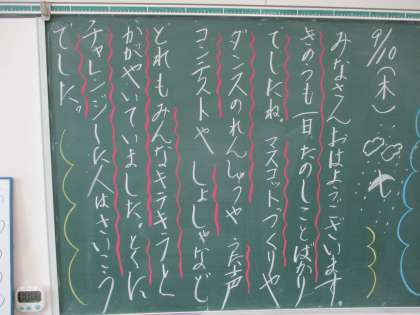 9/10(木)
みなさんおはようございます。
きのうも一日たのしことばかり
でしたね。マスコットづくりや
ダンスのれんしゅうや うた声
コンテストや しょしゃなのど
どれもみんなキラキラと
かがやいていました。とくに
チャレンジした人はさいこう
でした。